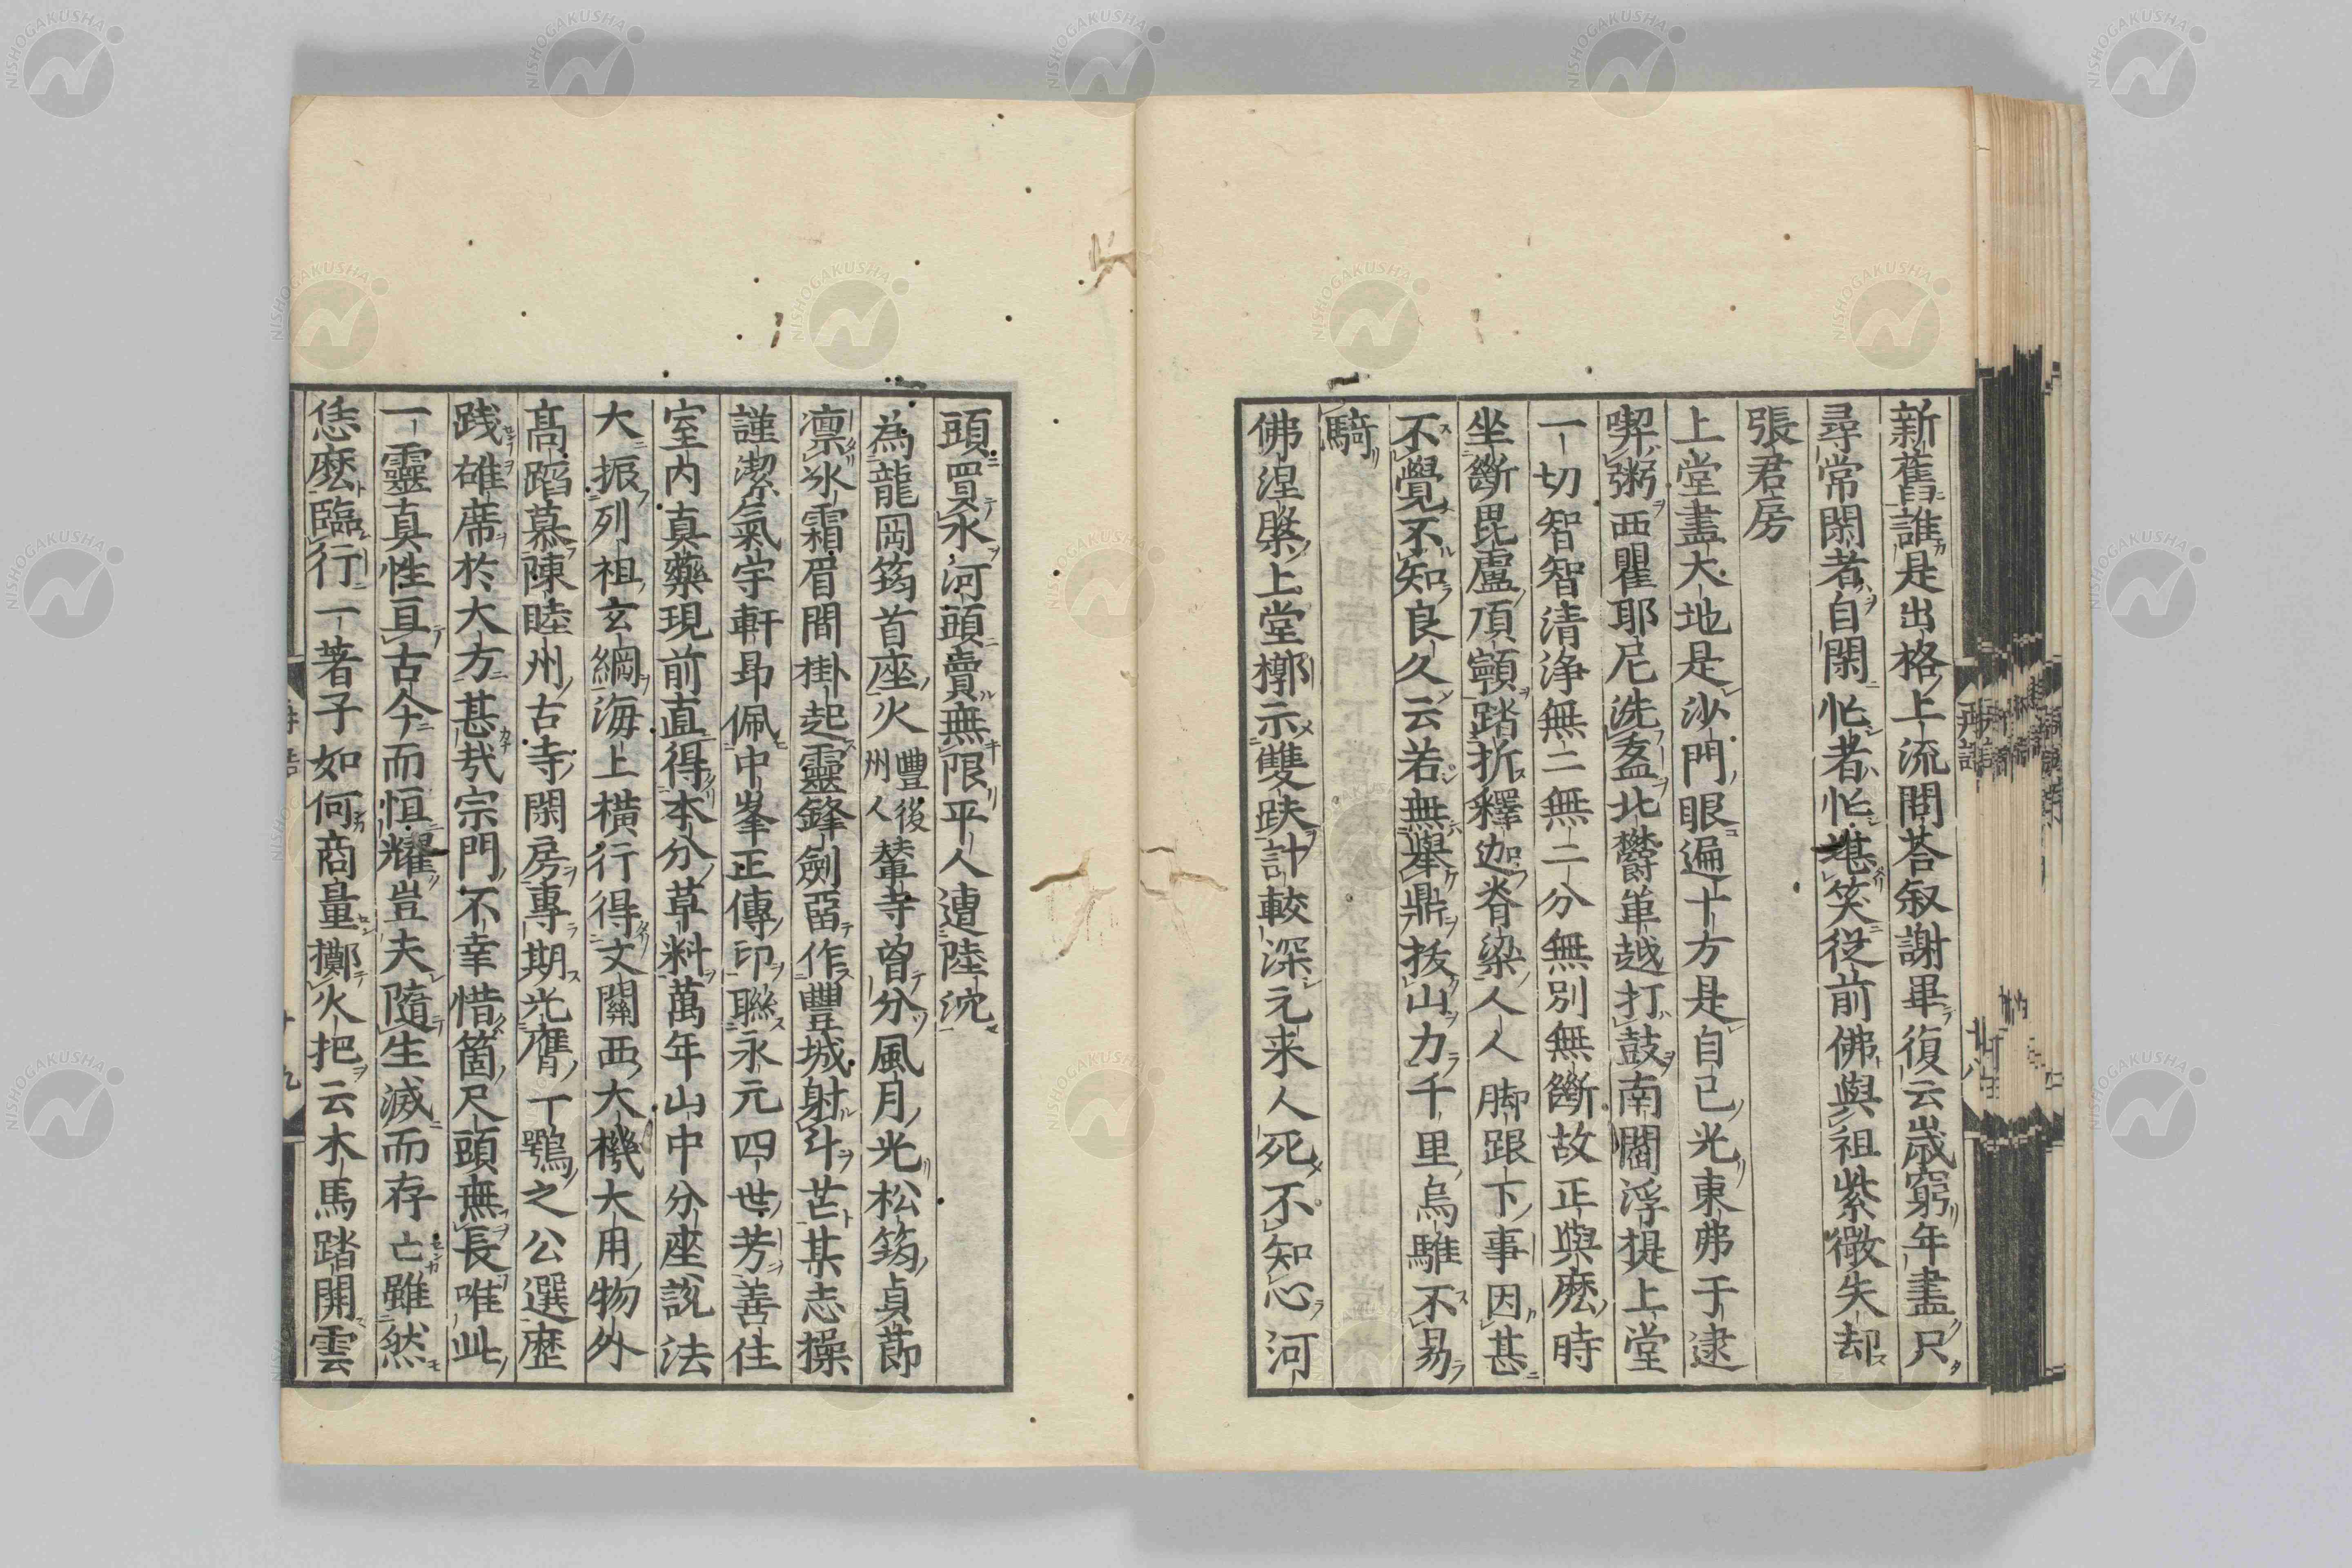 新舊誰是出格上流問荅叙謝畢復云歲窮年盡尺
尋常閑者自閑忙者忙堪笑從前佛與祖紫徵失却
張君房
上堂盡大地是沙門眼遍十方是自己光東弗于逮
喫粥西瞿耶尼洗盋北欝單越打鼓南閻浮提上堂
一切智智清淨無二無二分無別無斷故正與麽時
坐斷毘盧頂𩕳踏折釋迦脊梁人人脚跟下事因甚
不覺不知良久云若無舉鼎拔山力千里烏騅不易
騎
佛涅槃上堂槨示雙趺計較深元来人死不知心河
頭買水河頭賣無限平人遭陸沈
為龍岡筠首座火豐後州人輦寺曾分風月光松筠貞節
凛氷霜眉間掛起靈鋒劍𠚏作豐城射斗芒某志操
謹潔氣宇軒昂佩中峯正傳印聯永元四世芳善住
室内真藥現前直得本分草料萬年山中分座說法
大振列祖玄綱海上橫行得文關西大機大用物外
髙蹈慕陳睦州古寺閑房專期光膺丁鶚之公選歴
践碓席於大方甚㢤宗門不幸惜箇尺頭無長唯此
一靈真性亘古今而恒耀豈夫隨生滅而存亡雖然
恁麽臨行一著子如何商量擲火把云木馬踏開雲
NISHOGAKUSHA